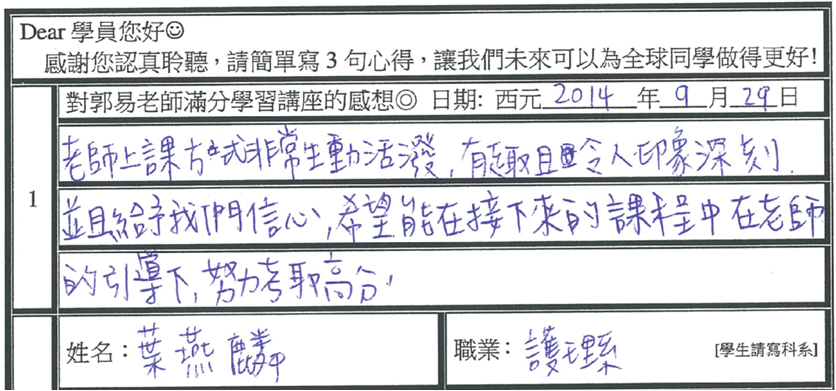 Dear 學員您好☺
感謝您認真聆聽，請簡單寫 3 句心得，讓我們未來可以為全球同學做得更好!
對郭易老師滿分學習講座的感想◎ 日期: 西元 2014 年 9 月 29 日
1
老師上課方式非常生動活潑，有趣且令人印象深刻.
並且給予我們信心,希望能在接下來的課程中在老師
的引導下,努力考取高分,
姓名：葉燕麟
職業：護理系 [學生請寫科系]